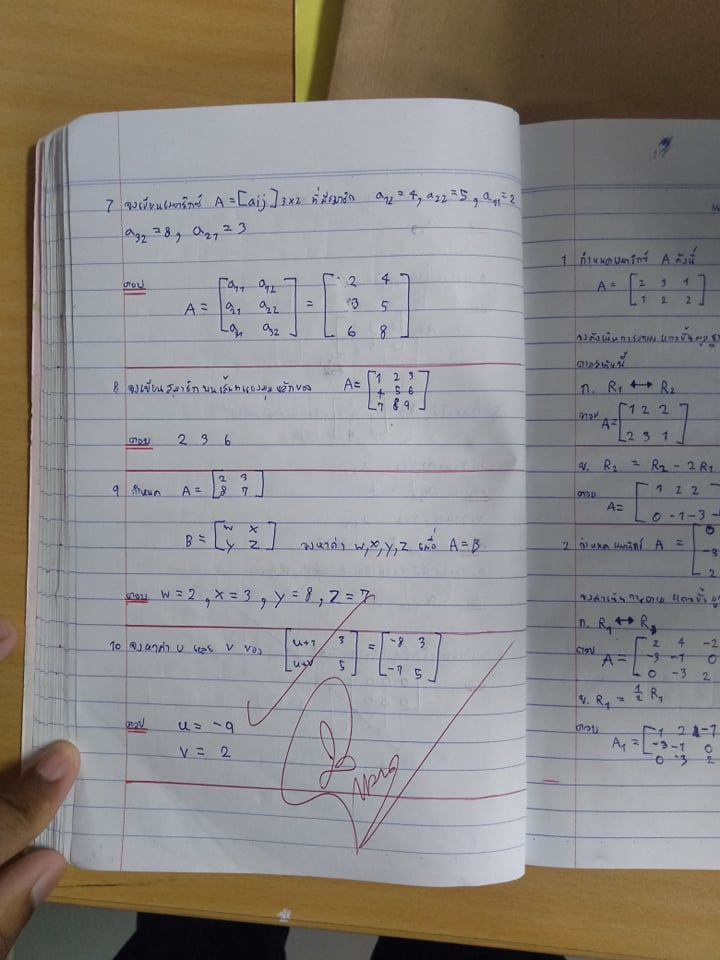 7 จงเขียนเมตริกซ์ A = [aij] 3x2 ที่มีสมาชิก a12 = 4, a22 = 5, a11 = 2
a32 = 8, a21 = 3
ตอบ
A = [a11 a12 = [2 4
a21 a22 3 5
a31 a32] 6 8]
8 จงเขียนสมาชิกบนเส้นทแยงมุมหลักของ A = [1 2 3
4 5 6
7 8 9]
ตอบ 2 3 6
9 กำหนด A = [2 3
8 7]
B = [w x
y z] จงหาค่า w,x,y,z เมื่อ A = B
ตอบ w = 2, x = 3, y = 8, z = 7
10 จงหาค่า u และ v ของ [u+1 3 = [-8 3
u+v 5] -7 5]
ตอบ u = -9
v = 2
1 กำหนดเมตริกซ์ A ดังนี้
A = [2 3 1
1 2 2]
ก. R1 ↔ R2
ตอบ A = [1 2 2
2 3 1]
ข. R2 = R2 - 2R1
ตอบ A = [1 2 2
0 -1 -3
2 กำหนดเมตริกซ์ A = [0
-3
2
ก. R1 ↔ R3
ตอบ A = [2 4 -2
-3 -1 0
0 -3 2
ข. R1 = 1/2 R1
ตอบ A1 = [1 2 -1
-3 -1 0
0 -3 2